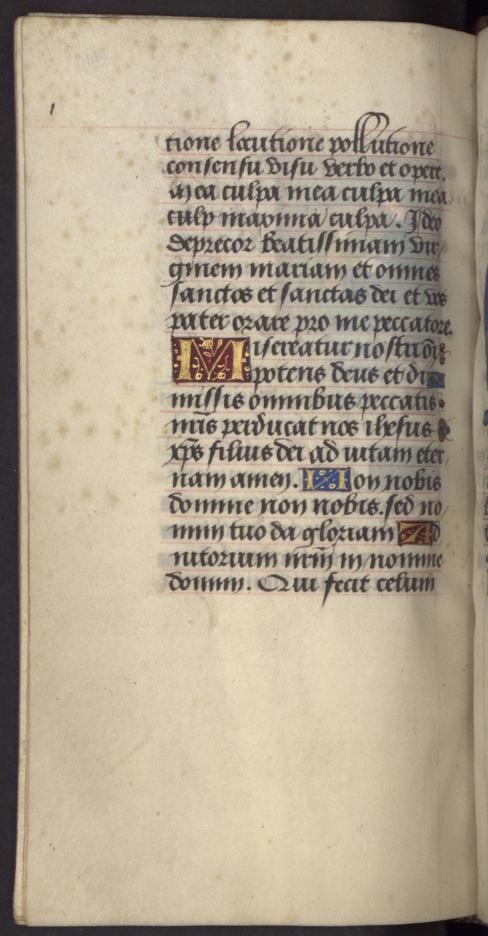 tione locutione pollutione
consensu visu verbo et opere.
Mea culpa mea culpa mea
culp maxima culpa. Ideo
deprecor beatissimam vir
ginem mariam et omnes
sanctos et sanctas dei et vos
pater orare pro me peccatore.
Misereatur nostri oīs
potens deus et di
missis omnibus peccatis
nr̄is perducat nos ihesus
xp̄s filius dei ad vitam eter
nam amen. Non nobis
domine non nobis. sed no
mini tuo da gloriam Ad
iutorium nr̄m in nomine
domini. Qui fecit celum